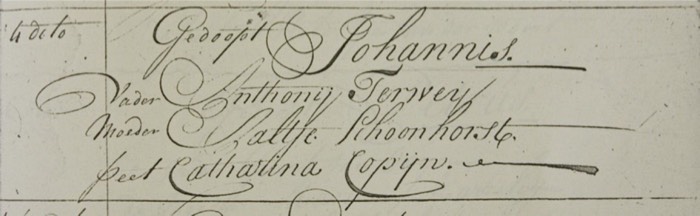 4 deto Gedoopt Johannis.
Vader Anthonij Terweij
Moeder Saltje Schoonhorst.
peet Catharina Copijn.